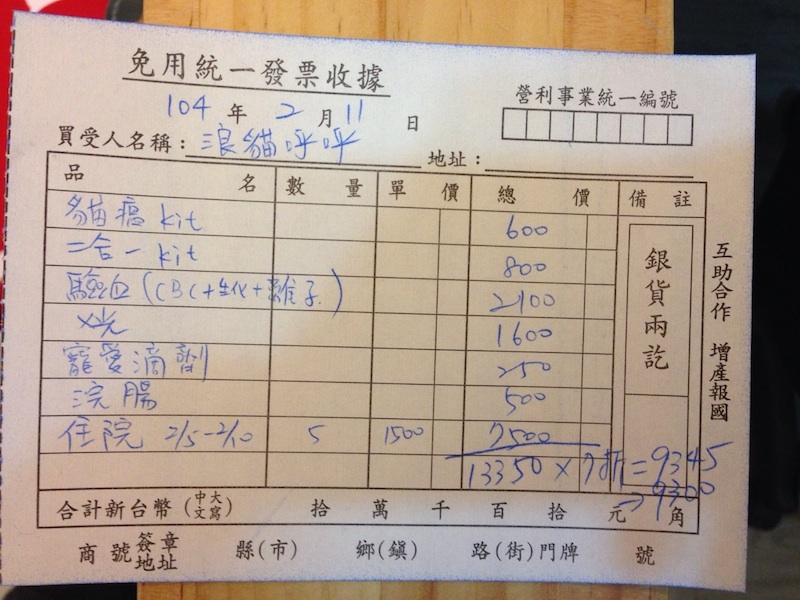 免用統一發票收據
營利事業統一編號
104 年 2 月 11 日
買受人名稱：浪貓呼呼 地址：
品 名 數 量 單 價 總 價 備 註
貓瘟 kit 600
二合一 kit 800
驗血 (CBC+生化+離子) 2100
X光 1600
寵愛滴劑 250
浣腸 500
住院 2/5-2/10 5 1500 7500
13350 × 7折 = 9345
→ 9300
銀貨兩訖
互助合作 增產報國
合計新台幣（中文大寫） 拾 萬 千 百 拾 元 角
商號簽章地址 縣(市) 鄉(鎮) 路(街)門牌 號